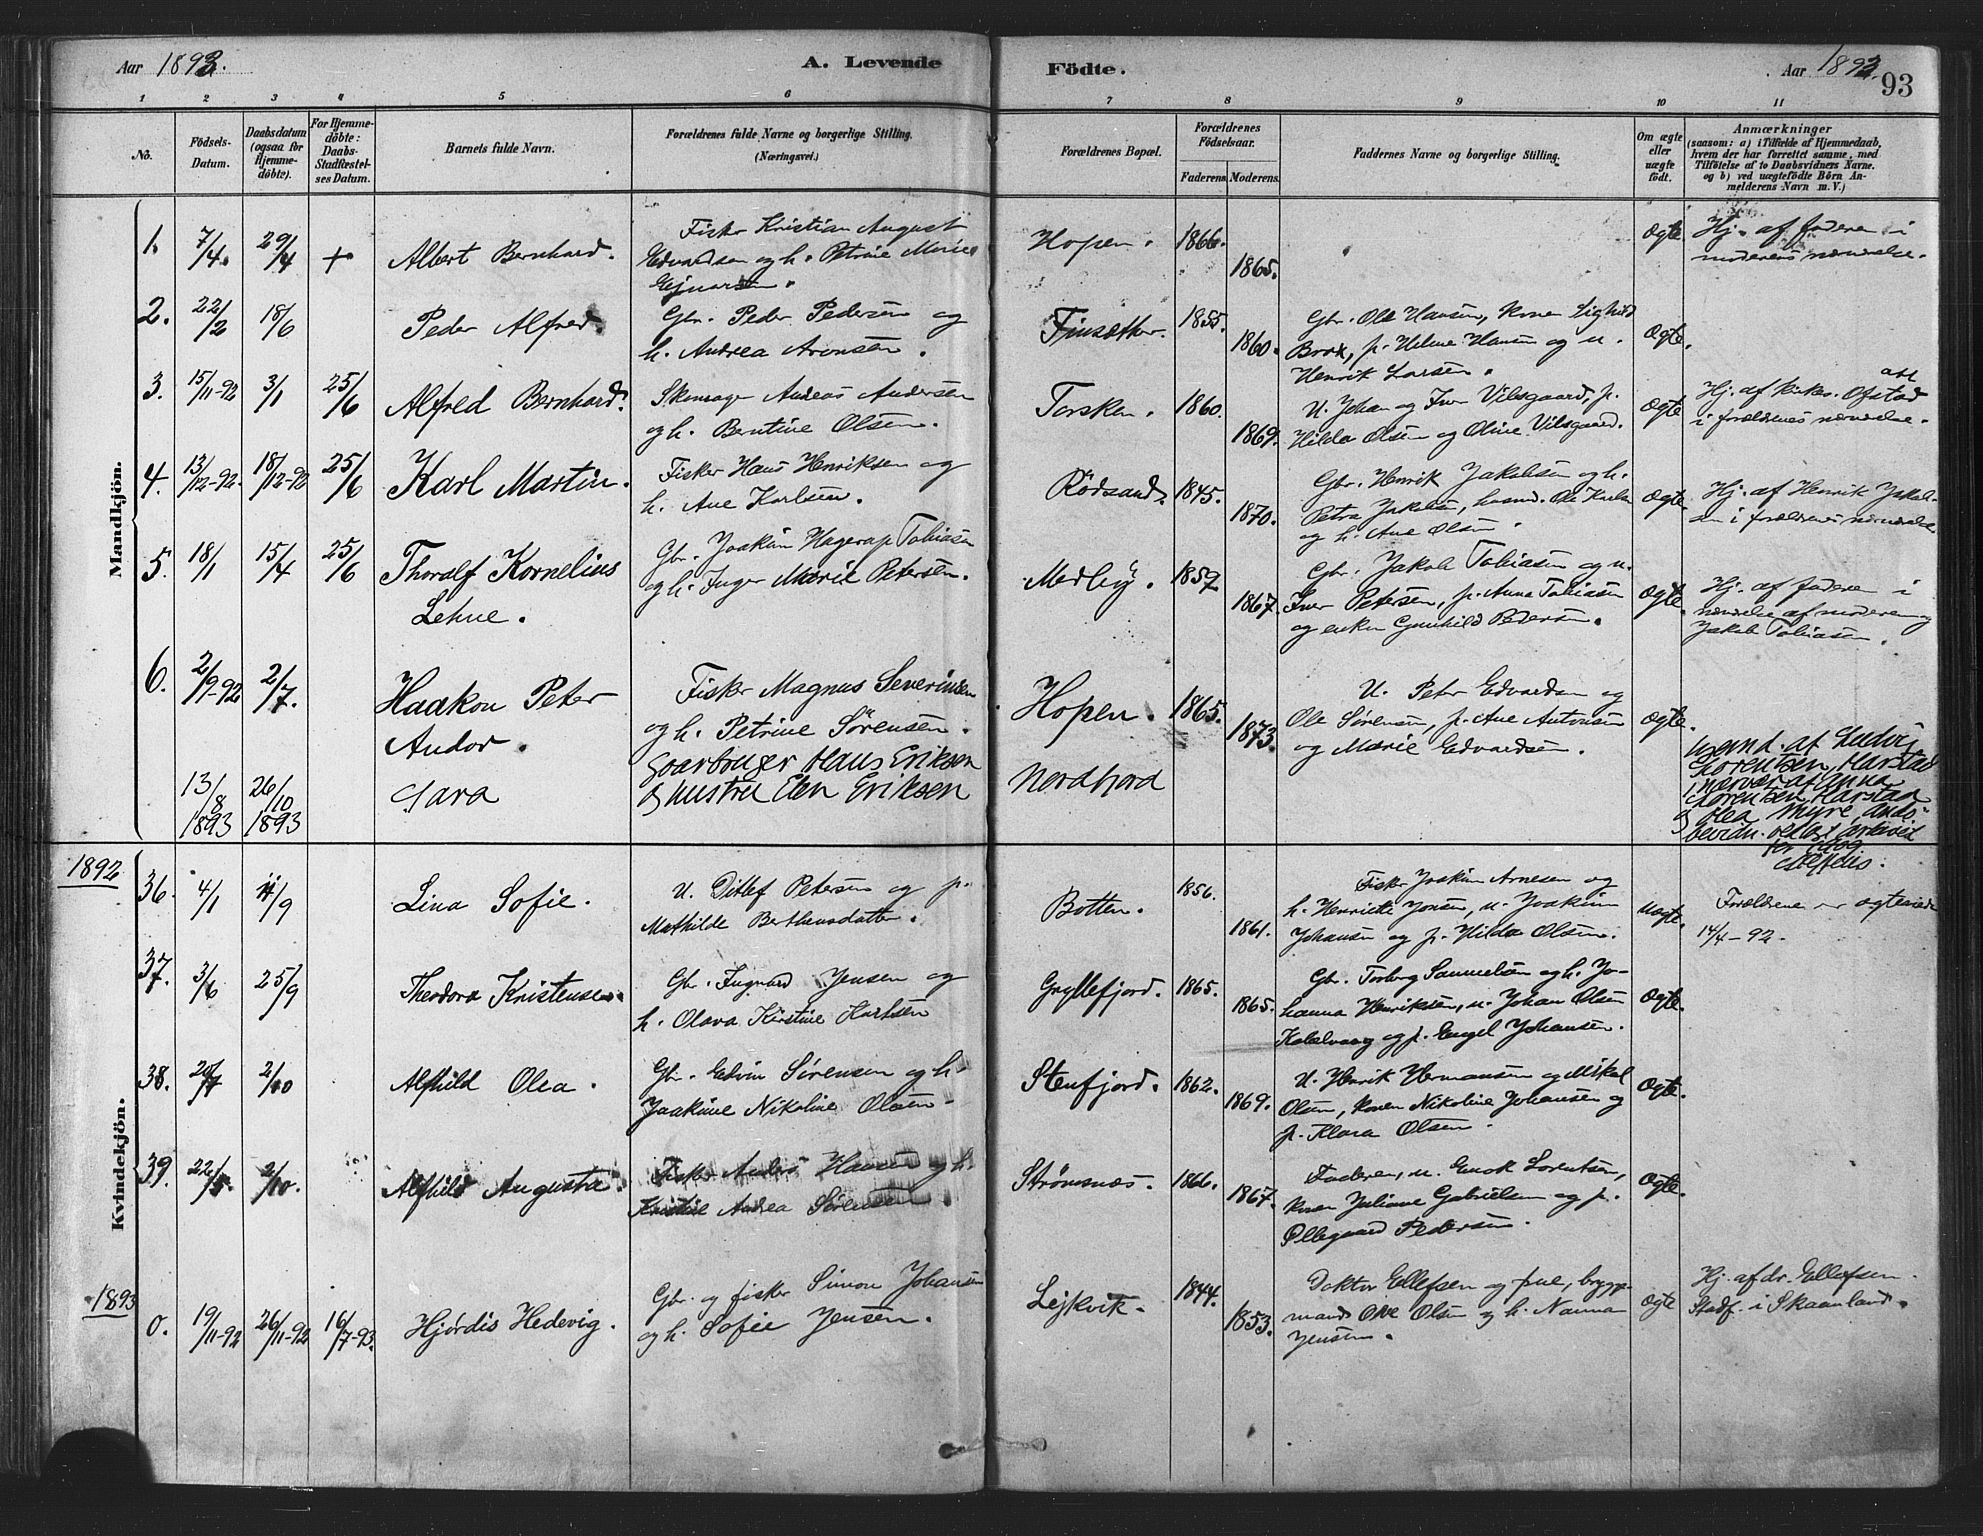 Aar 1893.
A. Levende
Födte.
Aar 1893.
93
1 2 3 4 5 6 7 8 9 10 11
No.
Födsels-Datum.
Daabsdatum (ogsaa for Hjemme-döbte).
For Hjemme-döbte: Daabs-Stadfæstel-ses Datum.
Barnets fulde Navn.
Forældrenes fulde Navne og borgerlige Stilling.
(Næringsvei.)
Forældrenes Bopæl.
Forældrenes Födselsaar.
Faderens. Moderens.
Faddernes Navne og borgerlige Stilling.
Om ægte eller uægte födt.
Anmærkninger
(saasom: a) i Tilfælde af Hjemmedaab, hvem der har forrettet samme, med Tilföielse af to Daabsvidners Navne. og b) ved uægtefödte Börn An-melderens Navn m. V.)
Mandkjön.
1. 7/4. 29/4 + Albert Bernhard.
Fisker Kristian August
Edvardsen og h. Petrine Marie
Ejnarsen.
Hopen. 1866. 1865.
ægte
Hj. af faderen i
moderens nærværelse.
2. 22/2 18/6 Peder Alfred.
Gbr. Peder Pedersen og
h. Andrea Aronsen.
Finsæther. 1855. 1860.
Gbr. Ole Hansen, kone Sighild
Brox, p. Heline Hansen og u.
Henrik Larsen.
ægte.
3. 15/11-92 3/1 25/6 Alfred Bernhard.
Skomager Andreas Andersen
og h. Berntine Olsen.
Torsken. 1860. 1869.
U. Johan og Iver Vilsgaard, p.
Hilda Olsen og Oline Vilsgaard.
ægte
Hj. af kirkes. Ofstad
i forældrenes nærværelse.
4. 13/12-92. 18/12-92 25/6 Karl Martin.
Fisker Hans Henriksen og
h. Ane Karlsen.
Rödsand. 1845. 1870.
Gbr. Henrik Jakobsen og h.
Petra Jakobsen, husmd. Ole Karlsen
og h. Ane Olsen.
ægte.
Hj. af Henrik Jakob-
sen i forældrenes nærværelse
5. 18/1 15/4 25/6 Thoralf Kornelius
Lehne.
Gbr. Joakim Hagerup Tobiasen
og h. Inger Marie Petersen.
Medby. 1859 1867.
Gbr. Jakob Tobiasen og u.
Iver Petersen, p. Anna Tobiasen
og enken Gunhild Pedersen.
ægte.
Hj. af faderen i
nærværelse af moderen og
Jakob Tobiasen.
6. 2/9-92 2/7. Haakon Peter
Andor.
Fisker Magnus Severinsen
og h. Petrine Sörensen.
Hopen. 1865. 1873.
U. Peter Edvardsen og
Ole Sørensen, p. Ane Antonsen
og Marie Edvardsen.
ægte.
13/8 1893 26/10 1893 Clara
Gaardbruger Hans Eriksen
og hustru Elen Eriksen
Nordfjord
af Ludvig
Lorentsen, Harstad
i nærvær af Anna
Lorentsen, Harstad
og Olea Myre, Ands-
1892
Kvindekjön.
36. 4/1 11/9 Lina Sofie.
U. Ditlef Petersen og p.
Mathilde Berthensdatter.
Botten. 1856. 1861.
Fisker Joakim Arnesen og
h. Henriette Jonsen, u. Joakim
Johansen og p. Hilda Olsen.
uægte.
Forældrene er ægteviede
14/4-92.
37. 3/6 25/9 Theodora Kristensen.
Gbr. Ingvard Jensen og
h. Olava Kirstine Hartsen
Gryllefjord. 1865. 1865.
Gbr. Torberg Samuelsen og h. Jo-
hanna Henriksen, u. Johan Olsen
Kaldvaag og p. Engel Johansen.
ægte.
38. 20/7 2/10 Alfhild Olea.
Gbr. Edvin Sörensen og h.
Joakime Nikoline Olsen.
Stenfjord. 1862. 1869.
U. Henrik Hermansen og Mikal
Olsen, konen Nikoline Johansen og
p. Klara Olsen.
ægte.
39. 22/5. 2/10. Alfhild Augusta.
Fisker Anders Hansen og h.
Kristine Andrea Sörensen.
Strömsnæs. 1866. 1867.
Faderen, u. Enok Lorentsen,
konen Juliane Gabrielsen og p.
Ollegaard Pedersen.
ægte.
1893
0. 19/11-92 26/11-92 16/7-93. Hjørdis Hedevig.
Gbr. og fisker Simon Johansen
og h. Sofie Jensen.
Lejkvik. 1844. 1853.
Doktor Ellefsen og frue, brygge-
mand Ole Olsen og h. Nanna
Jensen.
ægte
Hj. af dr. Ellefsen.
Stadf. i Skaanland.